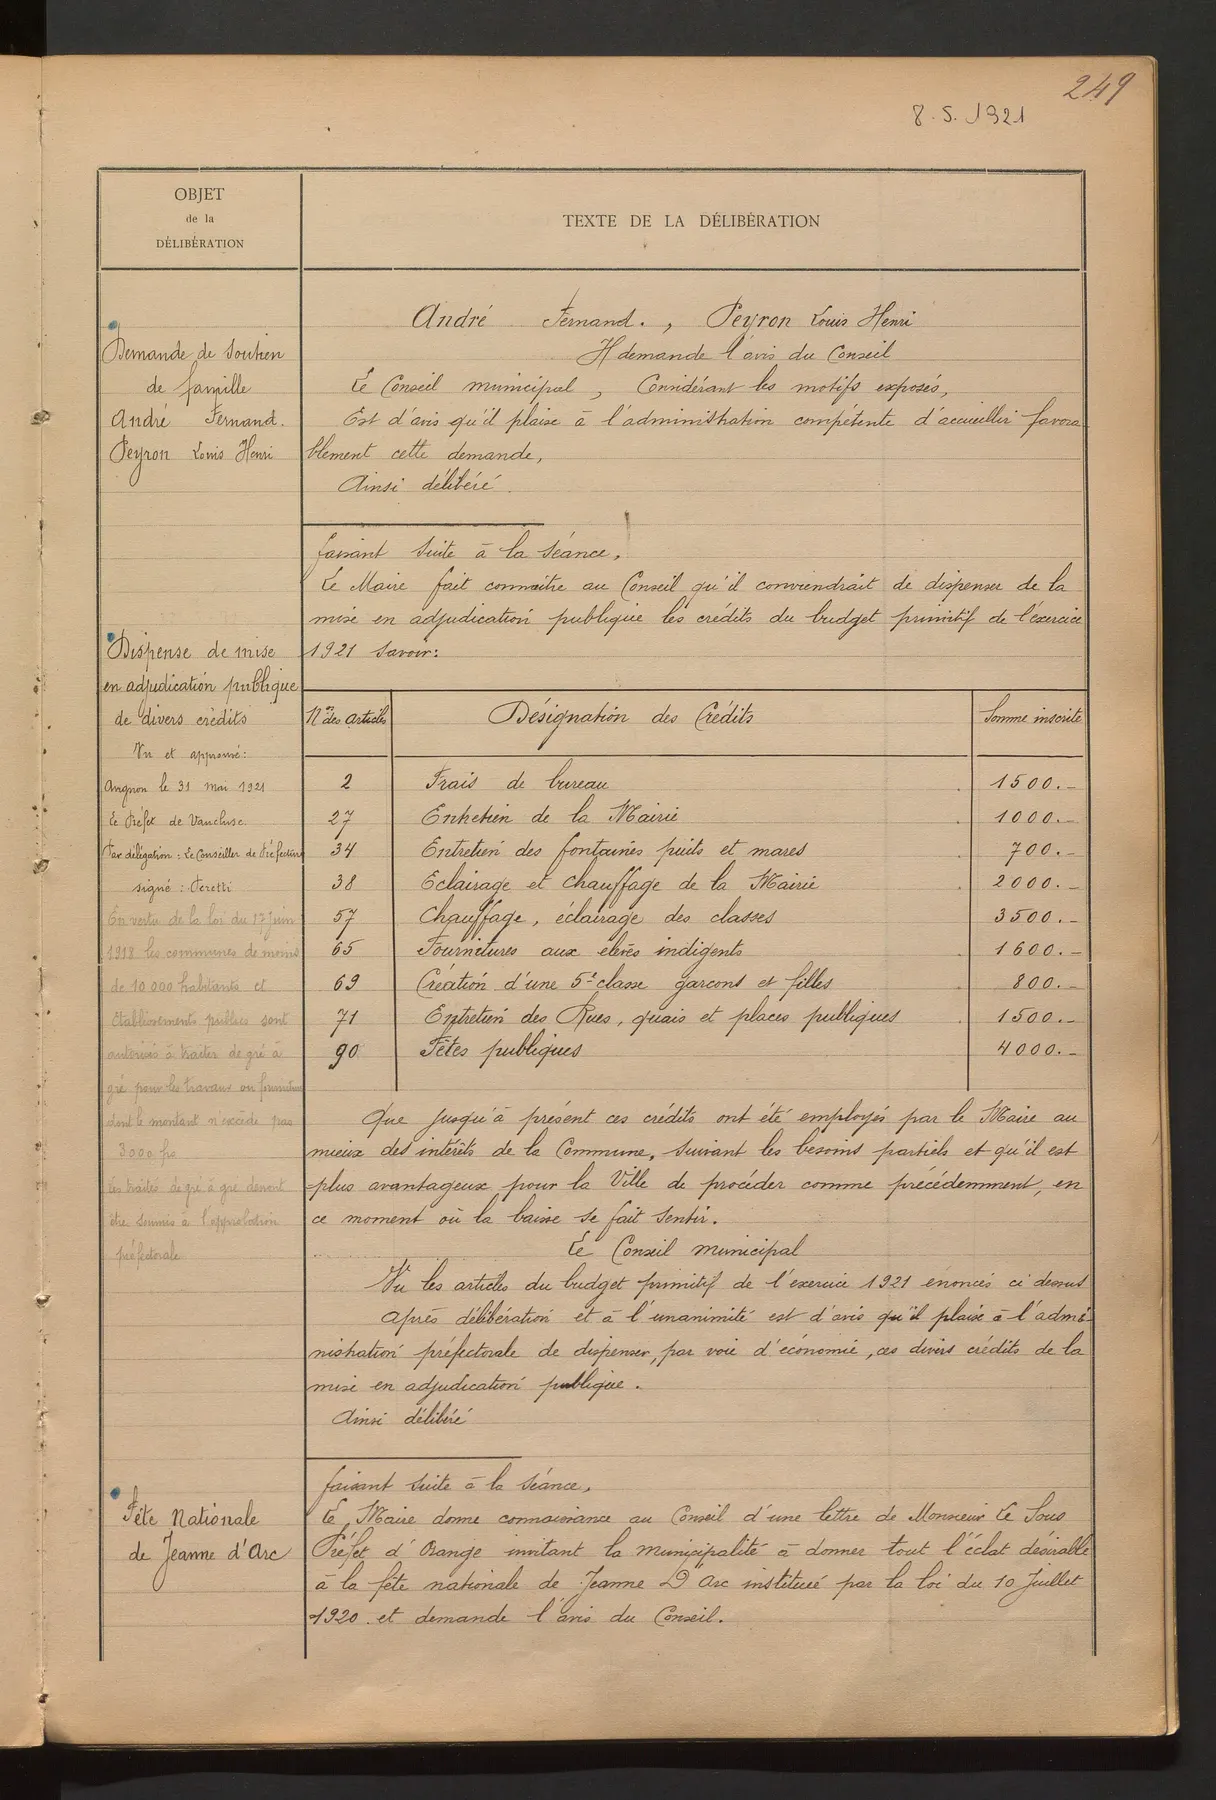 249
8.5.1921
OBJET
de la
DÉLIBÉRATION
TEXTE DE LA DÉLIBÉRATION
Demande de Soutien
de famille
André Fernand.
Peyron Louis Henri
André Fernand., Peyron Louis Henri
Il demande l'avis du Conseil
Le Conseil municipal, Considérant les motifs exposés,
Est d'avis qu'il plaise à l'administration compétente d'accueillir favora
blement cette demande,
Ainsi délibéré.
faisant suite à la séance,
Le Maire fait connaître au Conseil qu'il conviendrait de dispenser de la
mise en adjudication publique les crédits du budget primitif de l'exercice
1921 savoir:
Dispense de mise
en adjudication publique
de divers crédits
Vu et approuvé:
Avignon le 31 mai 1921
Le Préfet de Vaucluse
Par délégation: Le Conseiller de Préfecture
signé: Peretti
En vertu de la loi du 17 juin
1918 les communes de moins
de 10 000 habitants et
établissements publics sont
autorisés à traiter de gré à
gré pour les travaux ou fournitures
dont le montant n'excède pas
3000 frs
les traités de gré à gré devront
être soumis à l'approbation
préfectorale
Nos des articles Désignation des Crédits Somme inscrite
2 Frais de bureau 1500.-
27 Entretien de la Mairie 1000.-
34 Entretien des fontaines puits et mares 700.-
38 Eclairage et chauffage de la Mairie 2000.-
57 Chauffage, éclairage des classes 3500.-
65 Fournitures aux élèves indigents 1600.-
69 Création d'une 5e classe garçons et filles 800.-
71 Entretien des Rues, quais et places publiques 1500.-
90 Fêtes publiques 4000.-
Que jusqu'à présent ces crédits ont été employés par le Maire au
mieux des intérêts de la Commune, suivant les besoins partiels et qu'il est
plus avantageux pour la Ville de procéder comme précédemment, en
ce moment où la baisse se fait sentir.
Le Conseil municipal
Vu les articles du budget primitif de l'exercice 1921 énoncés ci dessus
Après délibération et à l'unanimité est d'avis qu'il plaise à l'admi
nistration préfectorale de dispenser, par voie d'économie, ces divers crédits de la
mise en adjudication publique.
Ainsi délibéré
Fête Nationale
de Jeanne d'Arc
faisant suite à la séance,
Le Maire donne connaissance au Conseil d'une lettre de Monsieur Le Sous
Préfet d'Orange invitant la municipalité à donner tout l'éclat désirable
à la fête nationale de Jeanne D'Arc instituée par la loi du 10 Juillet
1920 et demande l'avis du Conseil.